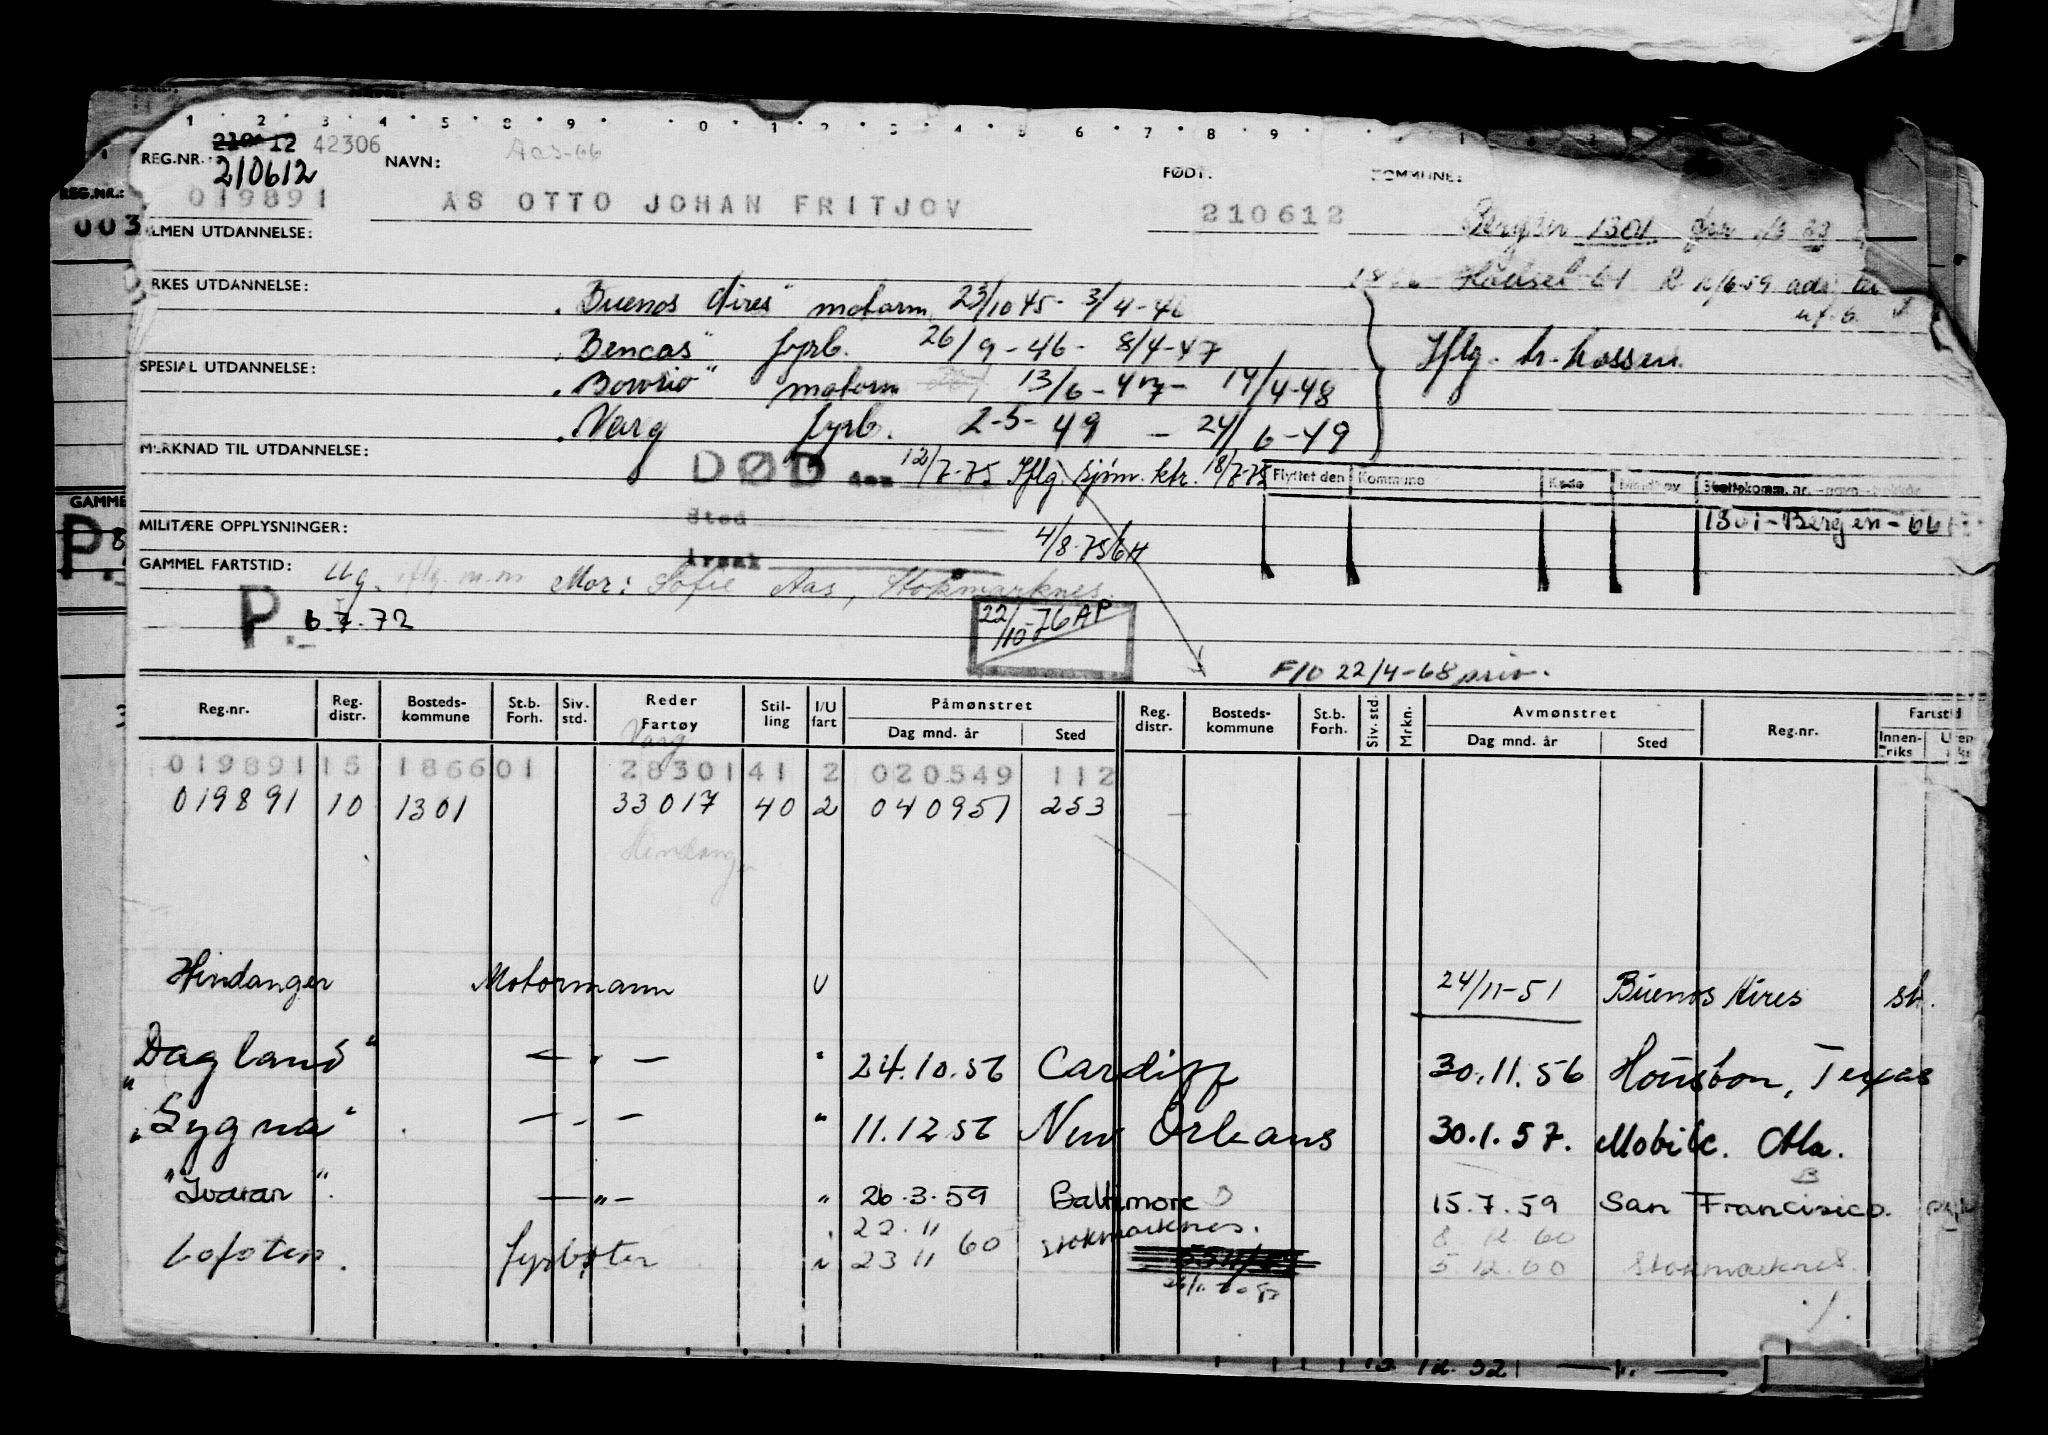 1 2 3 4 5 8 9 0 1 2 3 4 5 6 7 8 9
REG.NR. 42306 NAVN: Aas-66 FØDT: KOMMUNE:
210612
REG.NR.: 019891 AS OTTO JOHAN FRITJOV 210612 Bergen 1301
003 ALMEN UTDANNELSE:
YRKES UTDANNELSE: "Buenos Aires" motorm 23/10 45 - 3/4-46
"Bencas" fyrb. 26/9-46 - 8/4-47 Iflg. kr. kassen
SPESIAL UTDANNELSE: "Bowrio" motorm 13/6-47 - 14/4-48
"Varg fyrb. 2-5-49 - 24/6-49
MERKNAD TIL UTDANNELSE: DØD den 12/7-75 Iflg. sjøm. ktr. 18/7-75 Flyttet den Kommune Kode
GAMMEL Sted 1301-Bergen-661
P. 8 MILITÆRE OPPLYSNINGER: 4/8-75 GH
Årsak
GAMMEL FARTSTID: Ug. Mor: Sofie Aas, Stokmarknes.
P. 6.7.72 22/10-76 AP
F/O 22/4-68 priv.
Reg.nr. Reg. distr. Bosteds-kommune St.b. Forh. Siv. std. Reder Fartøy Stilling I/U fart Påmønstret Dag mnd. år Sted Reg. distr. Bosteds-kommune St.b. Forh. Siv. std. Mrkn. Avmønstret Dag mnd. år Sted Reg.nr. Fartstid Innenriks
Varg
019891 15 186601 28301 41 2 020549 112
019891 10 1301 33017 40 2 040951 253
Hindanger
Hindanger Motormann U 24/11-51 Buenos Aires st.
"Dagland" — " — " 24.10.56 Cardiff 30.11.56 Houston, Texas
"Sygna" — " — " 11.12 56 New Orleans 30.1.57. Mobile. Ala.
"Ivaran" — " — " 26.3.59 Baltimore 15.7.59 San Francisico.
22.11 60 Stokmarknes. 8.12.60
Lofoten. fyrbøter 23 11 5.12.60 Stokmarknes.
12.52